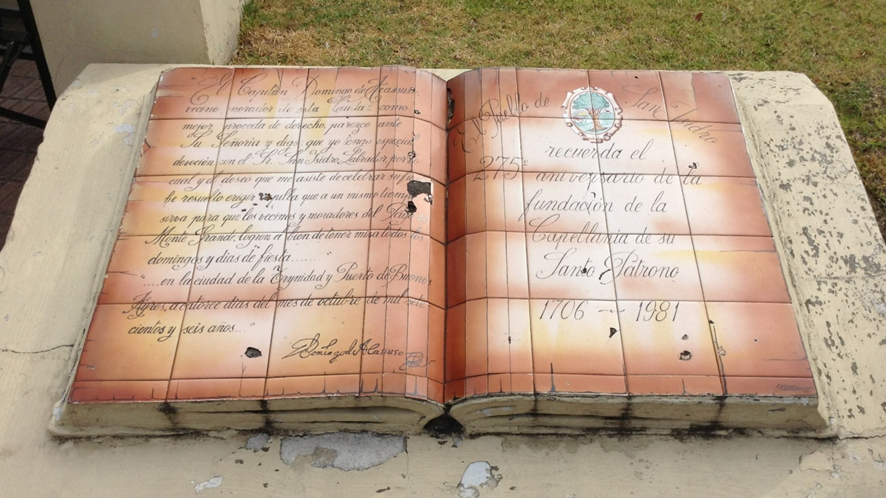 "El Capitán Domingo de Acassuso
vecino morador de esta Ciudad como
mejor proceda de derecho, parezco ante
Su Señoría y digo que yo tengo especial
devoción con el Sr. San Isidro Labrador por
cual y el deseo que me asiste de celebrar su
he resuelto erigir capilla que a un mismo tiempo
sirva para que los vecinos y moradores del Pago
Monte Grande, logren a bien de tener misa todos los
domingos y días de fiesta......."
"....en la ciudad de la Trynidad y Puerto de Buenos
Ayres, a catorce días del mes de octubre de mil sete
cientos y seis años..."
Domingo de Acassuso
El Pueblo de San Isidro
recuerda el
275º aniversario de la
fundación de la
Capellanía de su
Santo Patrono
1706 - 1981